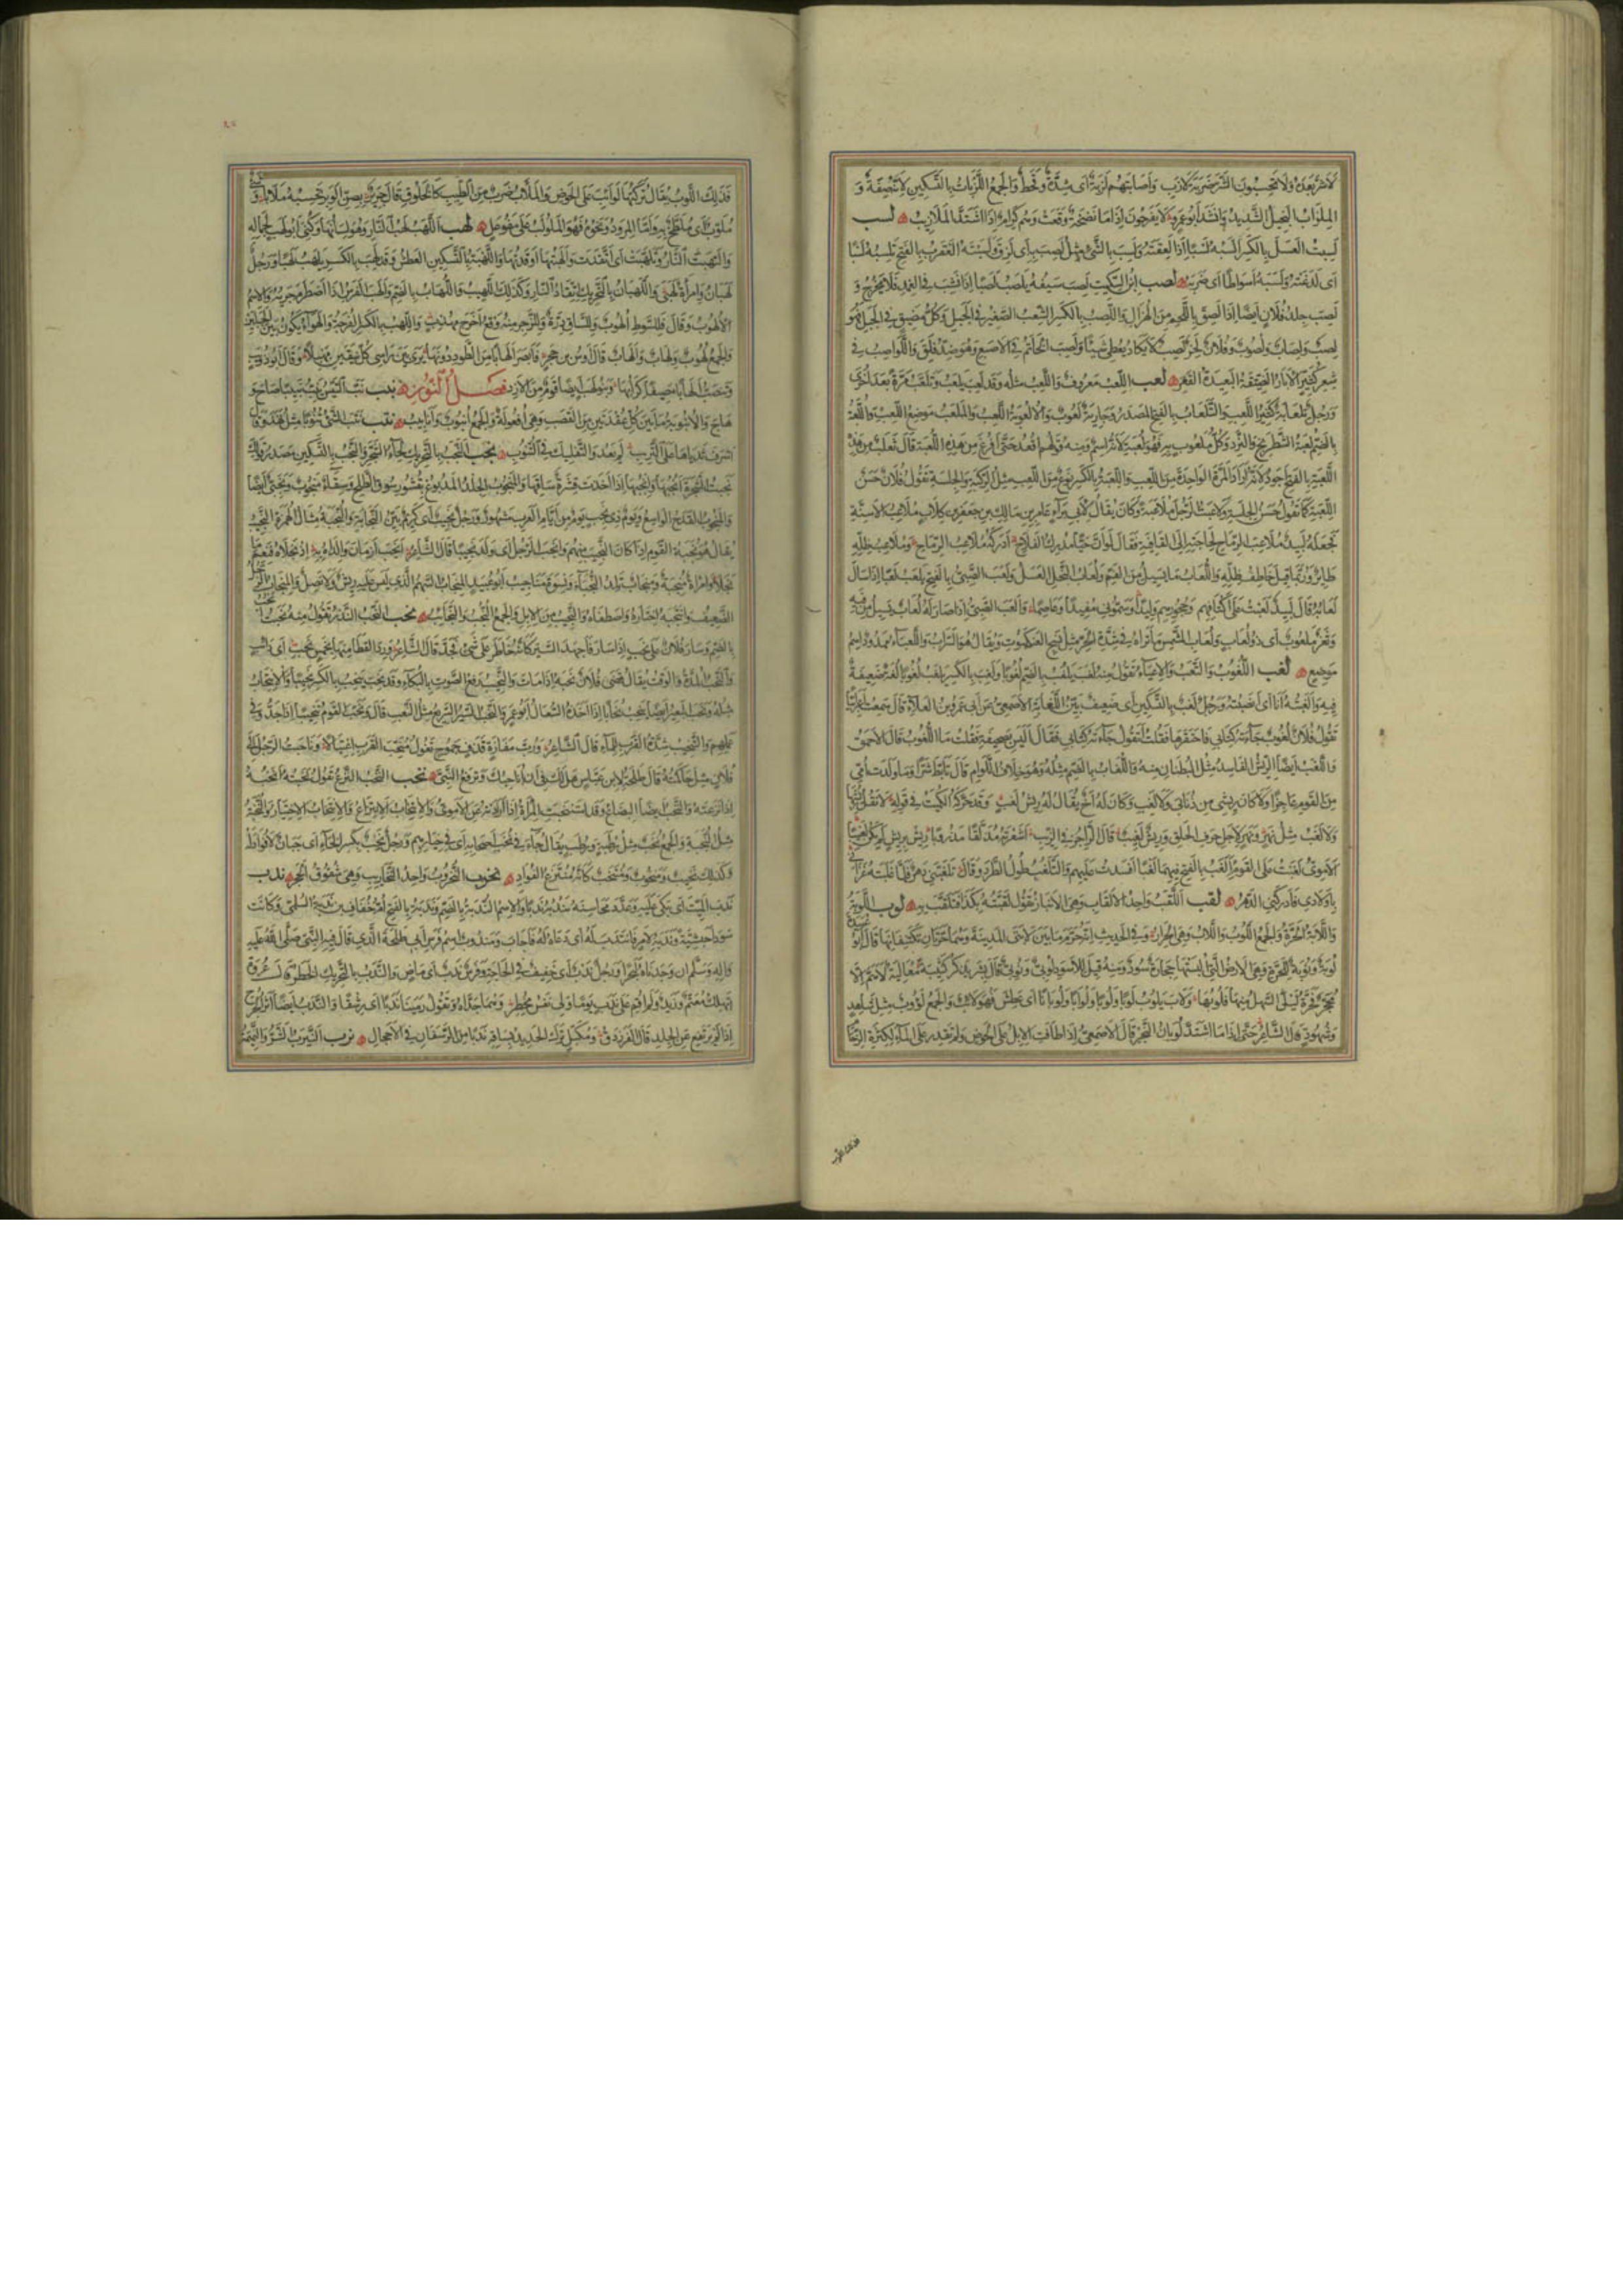 لا شر بعده ولا تحسبون الشر ضربة لازب وأصابتهم لزبة أي شدة وقحط والجمع اللزبات بالتسكين لأنه صفة و
الملزاب البخيل الشديد وأنشد أبو عمرو لا يفرحون إذا ما نضخة وقعت وهم كرام إذا اشتد الملازيب لسب
لسبت العسل بالكسر ألسبه لسبا إذا لعقته ولسب بالشئ مثل لصب به أي لزق ولسبته العقرب بالفتح تلسبه لسبا
أي لدغته ولسبه أسواطا أي ضربه لصب ابن السكيت لصب سيفه يلصب لصبا إذا نشب في الغمد فلا يخرج و
لصب جلد فلان أيضا إذا لصق باللحم من الهزال واللصب بالكسر الشعب الصغير في الجبل وكل مضيق في الجبل فهو
لصب ولصاب ولصوب وفلان لحز لصب لا يكاد يعطي شيئا ولصب الخاتم في الاصبع وهو ضد قلق واللواصب في
شعر كثير الآبار الضيقة البعيدة القعر لعب اللعب معروف واللعب مثله وقد لعب يلعب وتلعب مرة بعد أخرى
ورجل تلعابة كثير اللعب والتلعاب بالفتح المصدر وجارية لعوب والألعوبة اللعب والملعب موضع اللعب واللعبة
بالضم لعبة الشطرنج والنرد وكل ملعوب به فهو لعبة لأنه اسم ومنه قولهم اقعد حتى أفرغ من هذه اللعبة قال ثعلب من هذه
اللعبة بالفتح أجود لأنه أراد المرة الواحدة من اللعب واللعبة بالكسر نوع من اللعب مثل الركبة والجلسة تقول فلان حسن
اللعبة كما تقول حسن الجلسة ولاعبت الرجل ملاعبة وكان يقال لأبي براء عامر بن مالك بن جعفر بن كلاب ملاعب الأسنة
فجعله لبيد ملاعب الرماح لحاجته إلى القافية فقال لو أن حيا مدرك الفلاح أدركه ملاعب الرماح وملاعب ظله
طائر وربما قيل خاطف ظله واللعاب ما يسيل من الفم ولعاب النحل العسل ولعب الصبي بالفتح يلعب لعبا إذا سال
لعابه قال لبيد لعبت على أكتافهم وحجورهم وليدا وسموني مفيدا وعاصما وألعب الصبي إذا صار له لعاب يسيل من فيه
وثغر ملعوب أي ذو لعاب ولعاب الشمس ما تراه في شدة الحر مثل نسج العنكبوت ويقال هو السراب واللعباء ممدود اسم
موضع لغب اللغوب والتعب والاعياء تقول منه لغب يلغب بالضم لغوبا ولغب بالكسر يلغب لغوبا لغة ضعيفة
فيه وألغبته أنا أي أنصبته ورجل لغب بالتسكين أي ضعيف بين اللغابة الأصمعي عن أبي عمرو بن العلاء قال سمعت أعرابيا
تقول فلان لغوب جاءته كتابي فاحتقرها فقلت أتقول جاءته كتابي فقال أليس بصحيفة فقلت ما اللغوب قال الأحمق
واللغب أيضا الريش الفاسد مثل البطنان منه واللغاب بالضم مثله وهو خلاف اللؤام قال تأبط شرا وما ولدت أمي
من القوم عاجزا ولا كان ريشي من ذنابى ولا لغب وكان له أخ يقال له ريش لغب وقد حركه الكميت في قوله لا نقل ريشها
ولا لغب مثل نهر ونهر لأجل حرف الحلق وريش لغيب قال الراجز في الذئب أشعرته مذلقا مذروبا ريش بريش لم يكن لغيبا
الأموي لغبت على القوم ألغب بالفتح فيهما لغبا أفسدت عليهم والتلغب طول الطرد وقال تلغبني دهري فلما غلبته غزاني
بأولادي فأدركني الدهر لقب اللقب واحد الألقاب وهي الأنباز تقول لقبته بكذا فتلقب به لوب اللوبة
واللابة الحرة والجمع اللوب واللاب وهي الحرار وفي الحديث انه حرم ما بين لابتي المدينة وهما حرتان تكتنفانها قال أبو عبيدة
لوبة ونوبة للحرة وهي الأرض التي ألبستها حجارة سود ومنه قيل للأسود لوبي ونوبي قال بشر يذكر كتيبة معالية لا هم إلا
محجر فحرة ليلى السهل منها فلوبها ولاب يلوب لوبا ولوبا ولوابا ولوبانا أي عطش فهو لائب والجمع لؤوب مثل شاهد
وشهود قال الشاعر حتى إذا ما اشتد لوبان النجر قال الأصمعي إذا طافت الإبل على الحوض ولم تقدر على الماء لكثرة الزحام
فذلك اللوب
فذلك اللوب يقال تركتها لوائب على الحوض والملاب ضرب من الطيب كالخلوق قال جرير بصن الوبر تحسبه ملابا وشئ
ملوب أي ملطخ به وأما المرود ونحوه فهو الملولب على مفوعل لهب اللهب لهب النار وهو لسانها وكني أبو لهب لجماله
والتهبت النار وتلهبت أي اتقدت وألهبتها أوقدتها واللهبة بالتسكين العطش وقد لهب بالكسر يلهب لهبا ورجل
لهبان وامرأة لهبى واللهبان بالتحريك اتقاد النار وكذلك اللهيب واللهاب بالضم وألهب الفرس إذا اضطرم جريه والاسم
الألهوب وقال فللسوط ألهوب وللساق درة وللزجر منه وقع أخرج مهذب واللهب بالكسر الفرجة والهواء يكون بين الجبلين
والجمع لهوب ولهاب وألهاب قال أوس بن حجر فأبصر ألهابا من الطود دونها يرى بين رأسي كل نيقين مهبلا وقال أبو ذؤيب
وتنصب ألهابا مصيفا كرابها وبنو لهب أيضا قوم من الأزد فصل النون نبب نب التيس ينب نبيبا صاح و
هاج والأنبوبة ما بين كل عقدتين من القصب وهي أفعولة والجمع أنبوب وأنابيب نتب نتب الشئ نتوبا مثل نهد وقال
أشرف ثدياها على التريب لم يعدوا التفليك في النتوب نجب النجب بالتحريك لحاء الشجر والنجب بالتسكين مصدر قولك
نجبت الشجرة أنجبها وأنجبها إذا أخذت قشرة ساقها والمنجوب الجلد المدبوغ بقشور سوق الطلح وسقاء منجوب ونجبي أيضا
والمنجوب القدح الواسع ويوم ذي نجب يوم من أيام العرب مشهور ورجل نجيب أي كريم بين النجابة والنجبة مثال الهمزة النجيب
يقال هو نجبة القوم إذا كان النجيب منهم وأنجب الرجل أي ولد نجيبا قال الشاعر أنجب أزمان والداه به إذ نجلاه فنعم ما
نجلا وامرأة منجبة ومنجاب تلد النجباء ونسوة مناجيب أبو عبيد المنجاب السهم الذي ليس عليه ريش ولا نصل والمنجاب الرجل
الضعيف وانتجبه اختاره واصطفاه والنجيب من الإبل والجمع النجب والنجائب نحب النحب النذر تقول منه نحبت أنحب
بالضم وسار فلان على نحب إذا سار فأجهد السير كأنه خاطر على شئ فجد قال الشاعر ورد القطا منها بخمس نحب أي دائب
والنحب المدة والوقت يقال قضى فلان نحبه إذا مات والنحيب رفع الصوت بالبكاء وقد نحب ينحب بالكسر نحيبا والانتحاب
مثله ونحب البعير أيضا ينحب نحابا إذا أخذه السعال أبو عمرو النحب السير السريع مثل النعب قال ونحب القوم تنحيبا إذا جدوا في
عملهم والتنحيب شدة القرب للماء قال الشاعر ورب مفازة قذف جموح تغول منحب القرب اغتيالا وناحبت الرجل إلى
فلان مثل حاكمته قال طلحة لابن عباس هل لك في أن أناحبك وترفع النبي نخب النخب النزع تقول نخبته أنخبه
إذا نزعته والنخب أيضا البضاع وقد استنخبت المرأة إذا أرادته عن الأموي والانتخاب الانتزاع والانتخاب الاختيار والنخبة
مثل النجبة والجمع نخب مثل رطبة ورطب يقال جاء في نخب أصحابه أي في خيارهم ورجل نخب بكسر الخاء أي جبان لا فؤاد له
وكذلك نخيب ومنخوب ومنتخب كأنه منتزع الفؤاد نخرب النخروب واحد النخاريب وهي شقوق الحجر ندب
ندب الميت أي بكى عليه وعدد محاسنه يندبه ندبا والاسم الندبة بالضم وندبة بالفتح أم خفاف بن ندبة السلمي وكانت
سوداء حبشية وندبه لأمر فانتدب له أي دعاه له فأجاب ومندوب اسم فرس أبي طلحة الذي قال فيه النبي صلى الله عليه
وآله وسلم إن وجدناه لبحرا ورجل ندب أي خفيف في الحاجة وفرس ندب أي ماض والندب بالتحريك الخطر قال عروة
أيهلك معتم وزيد ولم أقم على ندب يوما ولي نفس مخطر وهما جداه وتقول رمينا ندبا أي رشقا والندب أيضا أثر الجرح
إذا لم يرتفع عن الجلد قال الفرزدق ومكبل ترك الحديد بساقه ندبا من الرسفان في الأحجال نرب النيرب الشر والنميمة